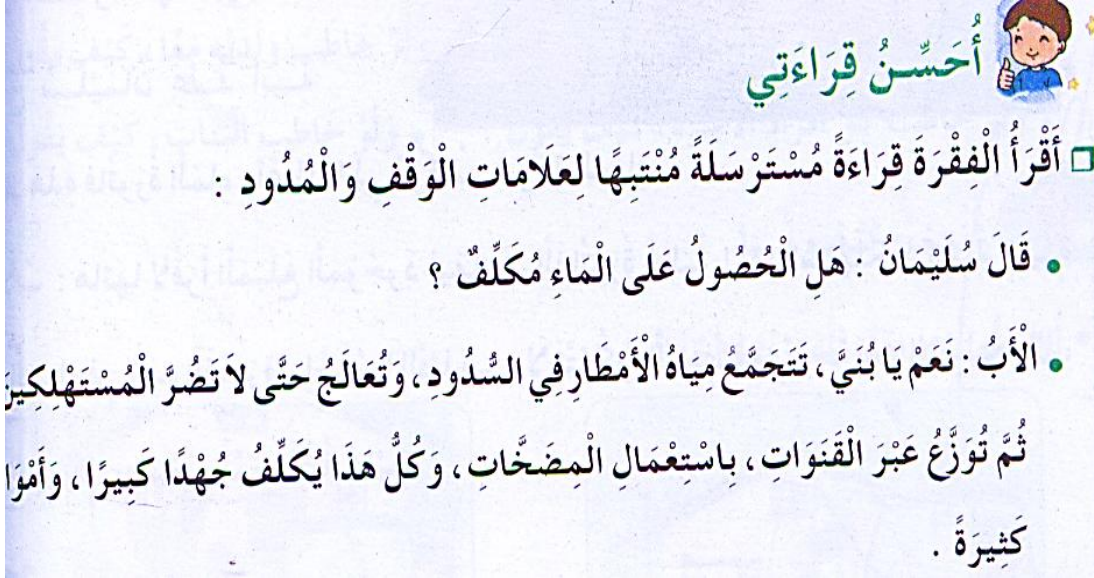 أُحَسِّنُ قِرَاءَتِي
أَقْرَأُ الْفِقْرَةَ قِرَاءَةً مُسْتَرْسَلَةً مُنْتَبِهًا لِعَلَامَاتِ الْوَقْفِ وَالْمُدُودِ :
• قَالَ سُلَيْمَانُ : هَلِ الْحُصُولُ عَلَى الْمَاءِ مُكَلِّفٌ ؟
• الْأَبُ : نَعَمْ يَا بُنَيَّ ، تَتَجَمَّعُ مِيَاهُ الْأَمْطَارِ فِي السُّدُودِ ، وَتُعَالَجُ حَتَّى لاَ تَضُرَّ الْمُسْتَهْلِكِينَ
ثُمَّ تُوَزَّعُ عَبْرَ الْقَنَوَاتِ ، بِاسْتِعْمَالِ الْمِضَخَّاتِ ، وَكُلُّ هَذَا يُكَلِّفُ جُهْدًا كَبِيرًا ، وَأَمْوَا
كَثِيرَةً .